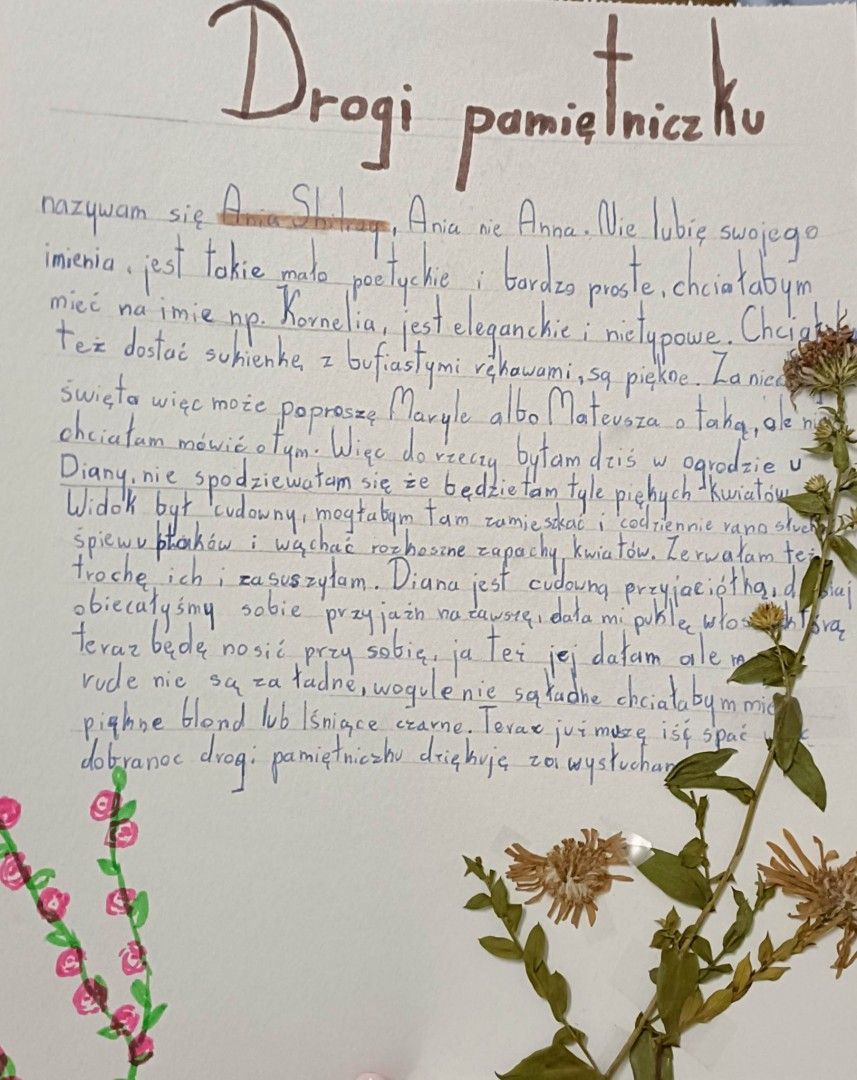 Drogi pamiętniczku
nazywam się Ania Shirley, Ania nie Anna. Nie lubię swojego
imienia, jest takie mało poetyckie i bardzo proste, chciałabym
mieć na imie np. Kornelia, jest eleganckie i nietypowe.
też dostać sukienkę z bufiastymi rękawami, są piękne.
święta więc może poproszę Maryle albo Mateusza o taką, ale
chciałam mówić o tym. Więc do rzeczy byłam dziś w ogrodzie u
Diany, nie spodziewałam się że będzie tam tyle pięknych kwiatów
Widok był cudowny, mogłabym tam zamieszkać i codziennie rano
śpiewu ptaków i wąchać rozkoszne zapachy kwiatów. Zerwałam też
trochę ich i zasuszyłam. Diana jest cudowną przyjaciółką,
obiecałyśmy sobie przyjaźń na zawsze, dała mi pukle
teraz będę nosić przy sobie, ja też jej dałam ale
rude nie są za ładne, wogule nie są ładne chciałabym
piękne blond lub lśniące czarne. Teraz już muszę iść spać
dobranoc drogi pamiętniczku dziękuję za